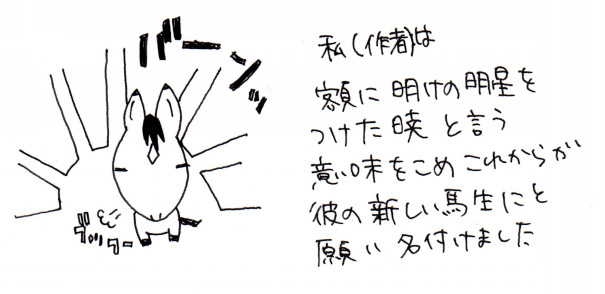 バーンッ
私(作者)は
額に明けの明星を
つけた暁と言う
意味をこめこれからが
彼の新しい馬生にと
願い名付けました